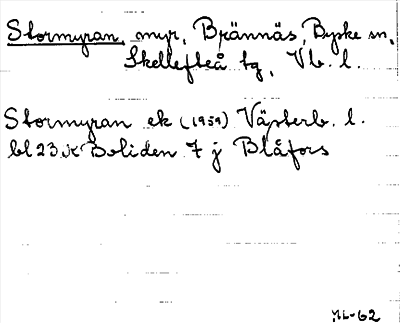 Stormyran, myr, Brännäs, Byske sn,
Skellefteå tg, Vb. l.
Stormyran ek (1959) Västerb. l.
bl 23 K Boliden 7 j Blåfors